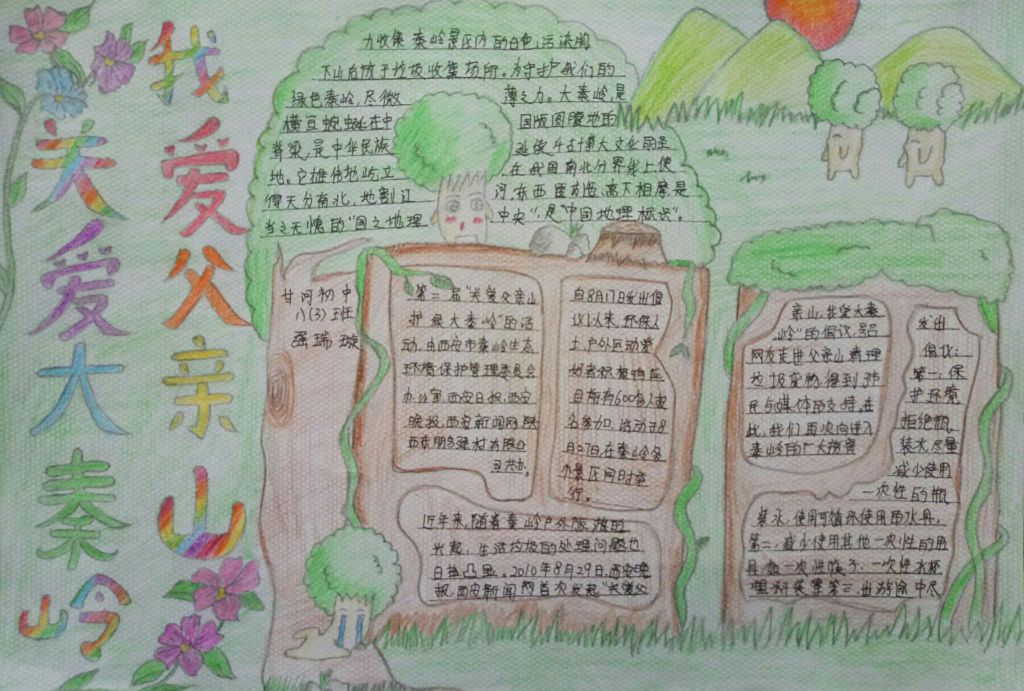 我爱父亲山
关爱大秦岭
为收集秦岭景区内的白色污染闻
下山后放于垃圾收集场所。为守护我们的
绿色秦岭,尽微薄之力。大秦岭,是
横亘蜿蜒在中国版图腹地的
脊梁,是中华民族
地。它雄伟地屿立在我国南北分界线上,使
得天分南北,地割江河,东西
当之无愧的"国之中央",是"中国地理标识"。
甘河初中
八(3)班
强瑞璇
第二届"关爱父亲山
护一条大秦岭"的活
动,由西安市秦岭生态
环境保护管理委员会
办公室,西安日报,西安
晚报,西安新闻网,陕
西东朋
司共办。
自8月17日发出倡
议以来,环保人
土户外运动爱
好者积极响应
目前有600名人报
名参加,活动于8
月27日在秦岭各
个景区同时举
行。
近年来,随着秦岭户外旅游的
兴起,生活垃圾的处理问题也
日益凸显。2010年8月29日,西安晚
报,西安新闻网首次发起"关爱父
亲山,我爱大秦
岭"的倡议,号召
网友走进父亲山清理
垃圾废物,得到
民与媒体的支持,在
此,我们再次向进入
秦岭的广大旅客
发出
倡议:
第一:保
护环境
拒绝瓶
装水,尽量
减少使用
一次性的瓶
装水,使用可循环使用的水具,
第二,减少使用其他一次性的用
具,如一次性筷子,一次性水杯
第三,出游途中尽